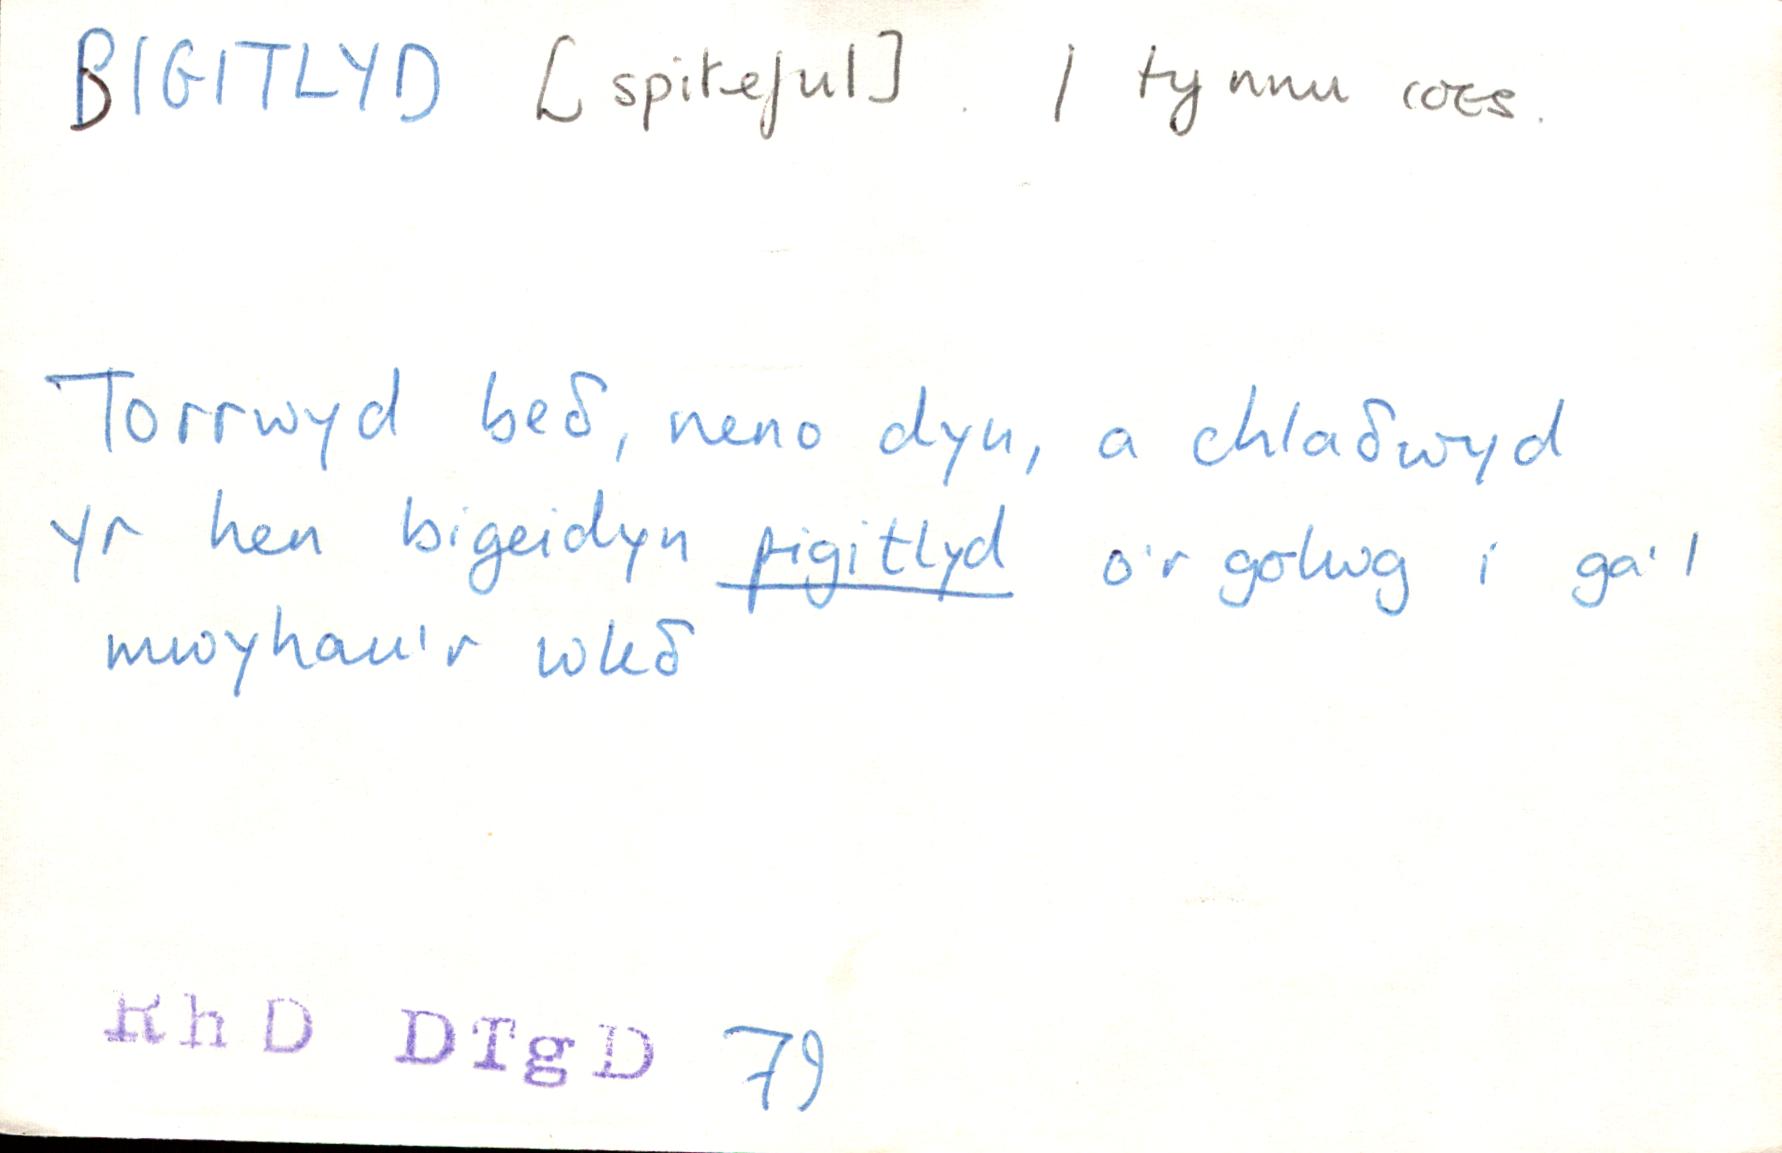 BIGITLYD [spiteful]. / tynnu coes.
Torrwyd beẟ, neno dyn, a chlaẟwyd
yr hen bigeidyn pigitlyd o'r golwg i ga'l
mwyhau'r wleẟ
RhD DTgD 79